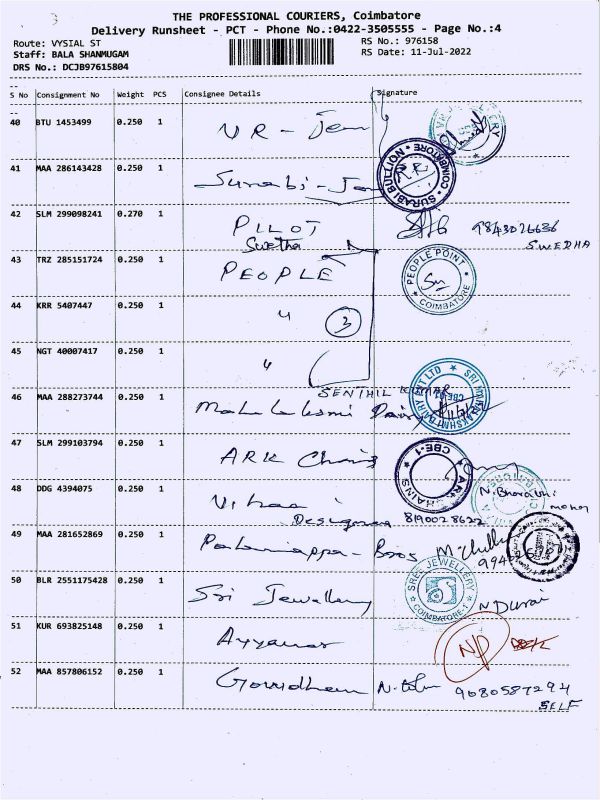 THE PROFESSIONAL COURIERS, Coimbatore
Delivery Runsheet - PCT - Phone No.:0422-3505555 - Page No.:4
Route: VYSIAL ST
RS No.: 976158
Staff: BALA SHANMUGAM
RS Date: 11-Jul-2022
DRS No.: DCJB97615804
S No Consignment No Weight PCS Consignee Details Signature
40 BTU 1453499 0.250 1 VR - Jew
41 MAA 286143428 0.250 1 Surabi - Jew
SURABI BULLION COIMBATORE
42 SLM 299098241 0.270 1 PILOT 9843026636
Swetha SWEDHA
43 TRZ 285151724 0.250 1 PEOPLE
PEOPLE POINT COIMBATORE
44 KRR 5407447 0.250 1 " 3
45 NGT 40007417 0.250 1 "
SENTHIL KUMAR
46 MAA 288273744 0.250 1 Maha Lakshmi Dairy
47 SLM 299103794 0.250 1 ARK Chains
ARK CHAINS CBE-1
48 DDG 4394075 0.250 1 N. Bharathi
Designer 8190028622
49 MAA 281652869 0.250 1 Palaniappa - Bros
50 BLR 2551175428 0.250 1 Sri Jewellery N Durai
SREE JEWELLERY COIMBATORE-1
51 KUR 693825148 0.250 1 Ayyanar N/D
52 MAA 857806152 0.250 1 Gowdham 9080587294
SELF